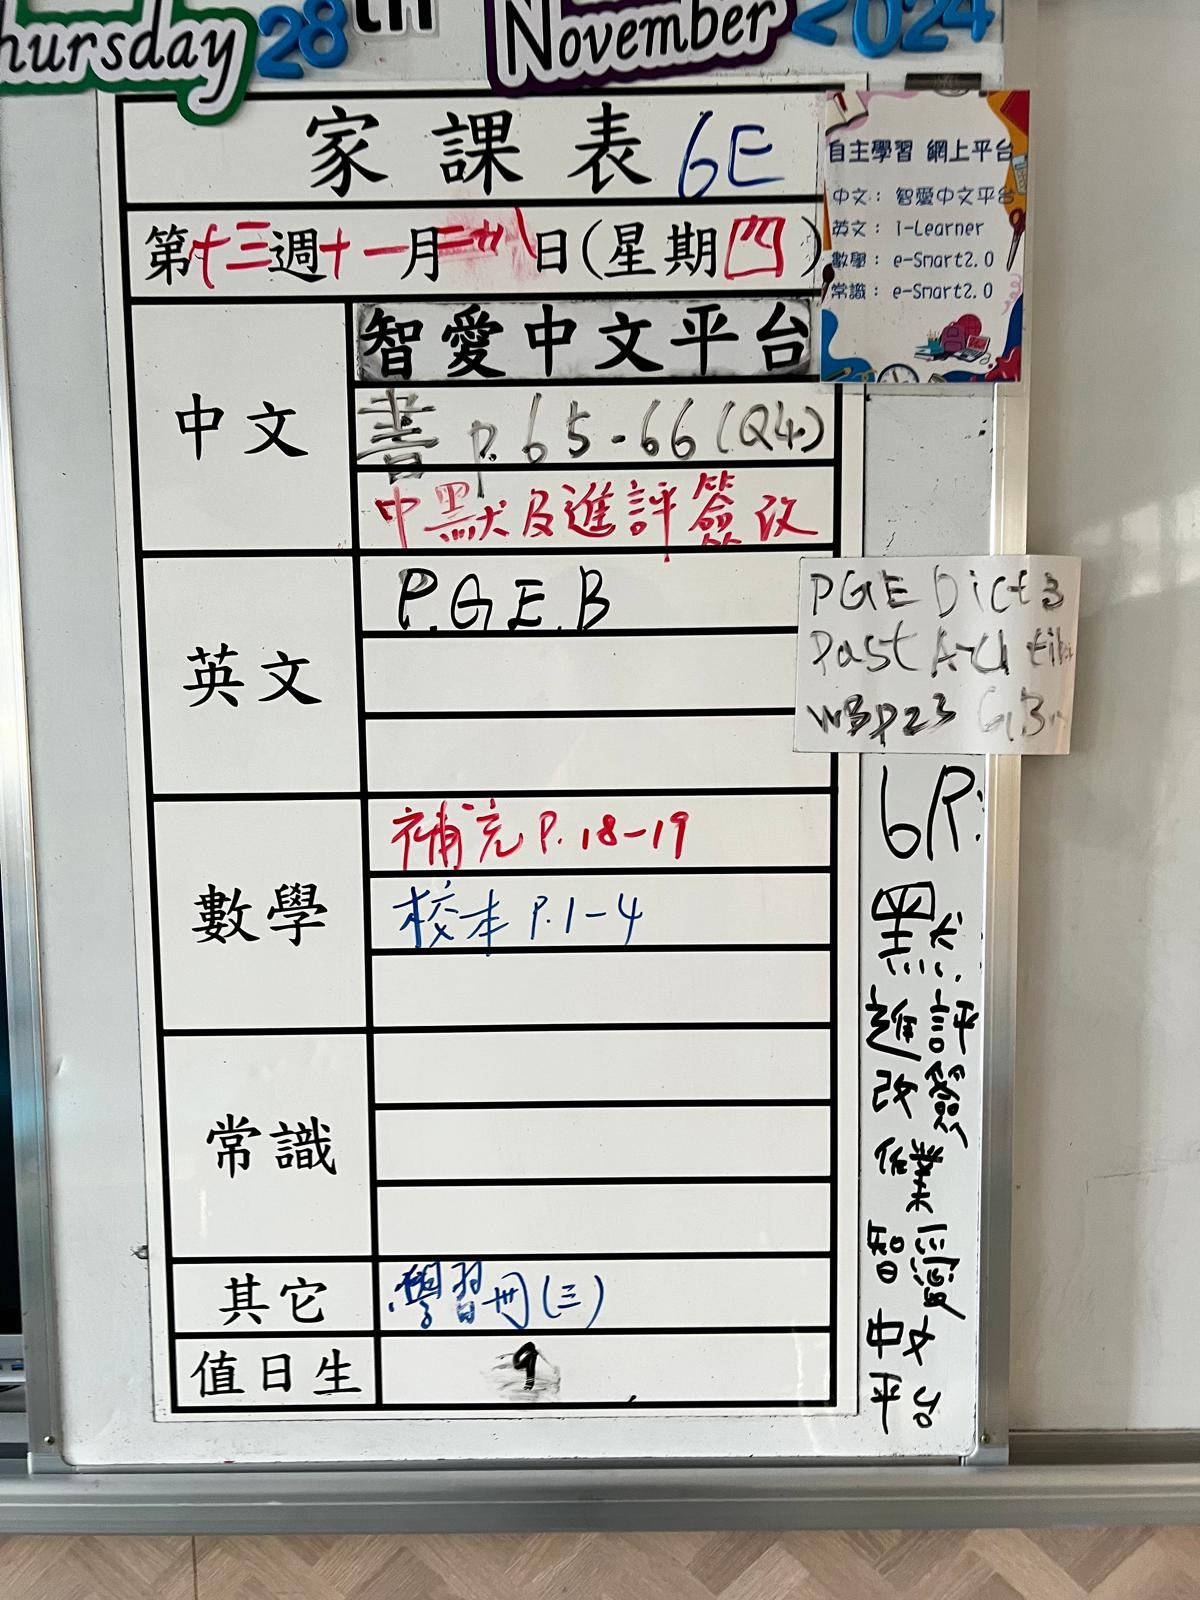 hursday 28th November 2024
家課表 6E
第十三週十一月二十八日(星期四)
自主學習 網上平台
中文: 智愛中文平台
英文: i-Learner
數學: e-Smart2.0
常識: e-Smart2.0
中文
智愛中文平台
書 p.65-66(Q4.)
中默及進評簽改
英文
P.G.E.B
PGE Dict 3
Past A
WB p23 GB
數學
補充 P.18-19
校本 P.1-4
常識
其它
學習冊(三)
值日生
9
6R:
默
進評
改簽
作業
智愛
中文
平台